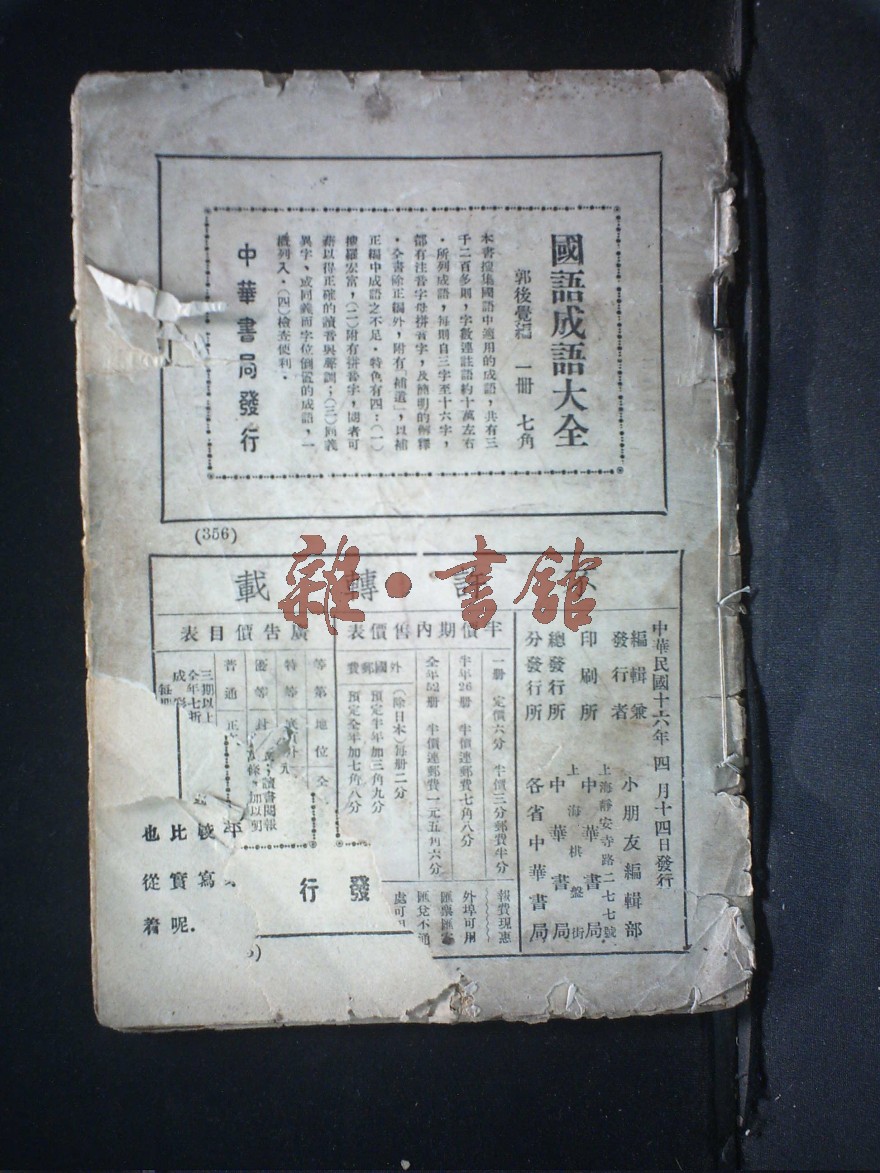 國語成語大全
郭後覺編 一冊 七角
本書搜集國語中適用的成語，共有三
千二百多則，字數連註語約十萬左右
。所列成語，每則自三字至十六字，
都有注音字母拼音字，及簡明的解釋
。全書除正編外，附有「補遺」，以補
正編中成語之不足。特色有四：（一）
搜羅宏富，（二）附有拼音字，閱者可
藉以得正確的讀音與聲調；（三）同義
異字、或同義而字位倒置的成語，一
概列入。（四）檢查便利。
中華書局發行
(356)
雜·書館
轉載
中華民國十六年四月十四日發行
編輯兼發行者 小朋友編輯部
印刷所 上海靜安寺路二七七號 中華書局
總發行所 上海棋盤街 中華書局
分發行所 各省中華書局
半價期內售價表
一冊 定價六分 半價三分郵費半分
半年26冊 半價連郵費七角八分
全年52冊 半價連郵費一元五角六分
外國郵費
（除日本）每冊二分
預定半年加三角九分
預定全年加七角八分
報費現惠
外埠可用
匯兌不通
處可
廣告價目表
等第 地位 全
特等 底頁外
優等 封
普通 正
三期以上
全年七折
讀書閱報
加以剪
發
行
寫
比實呢．
也從着